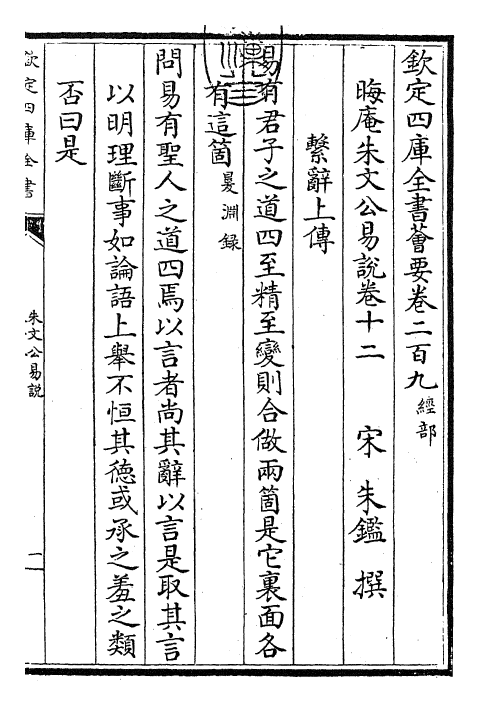 欽定四庫全書薈要卷二百九 經部
晦庵朱文公易說卷十二 宋 朱鑑 撰
繫辭上傳
易有君子之道四至精至變則合做兩箇是它裏面各
有這箇 㬊淵錄
問易有聖人之道四焉以言者尚其辭以言是取其言
以明理斷事如論語上舉不恒其德或承之羞之類
否曰是
欽定四庫全書
朱文公易說
一